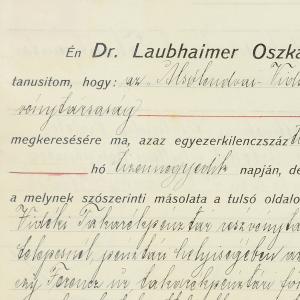 Én Dr. Laubhaimer Oszká
tanusitom, hogy: az "Alsólendvai Vidé
vénytársaság
megkeresésére ma, azaz egyezerkilenczszáz
hó tizennegyedik napján, dé
a melynek szószerinti másolata a tulsó oldalo
Vidéki Takarékpénztár részvénytá
pénztári helyiségében az
Ferencz úr takarékpénztári fő